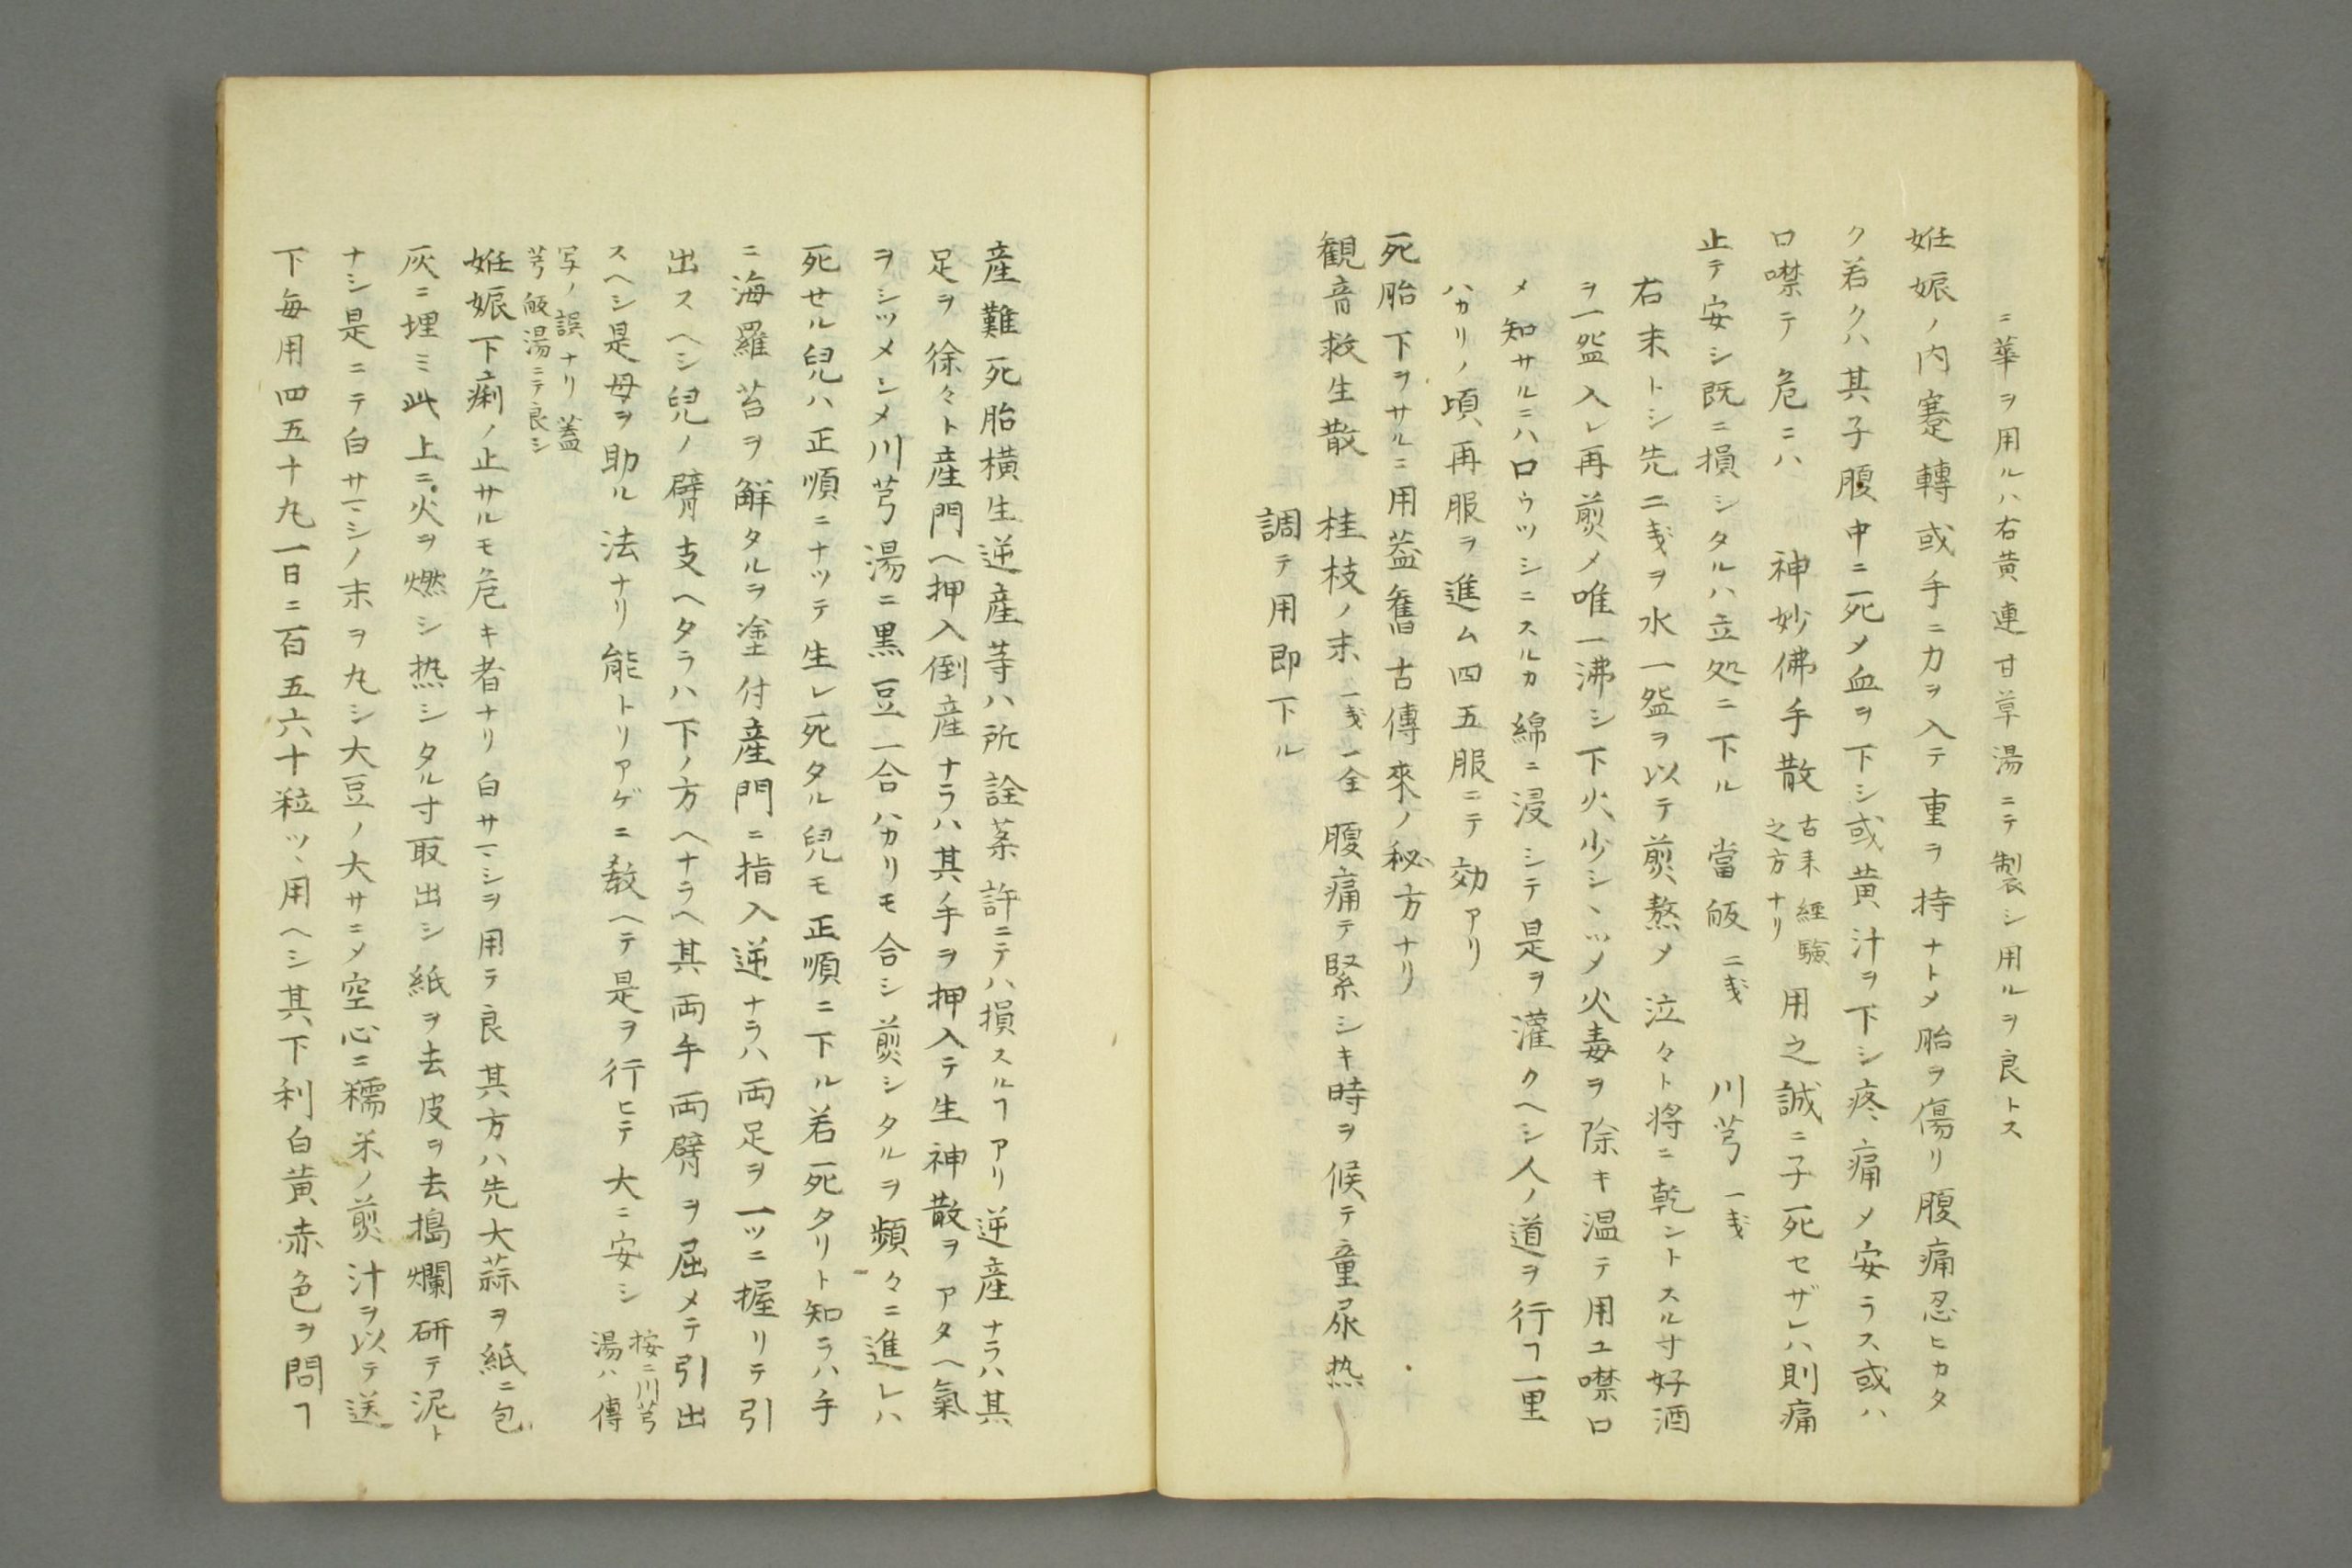 ニ華ヲ用ルハ右黄連甘草湯ニテ製シ用ルヲ良トス
妊娠ノ内蹇轉或手ニ力ヲ入テ重ヲ持ナトメ胎ヲ傷リ腹痛忍ヒカタ
ク若クハ其子腹中ニ死メ血ヲ下シ或黄汁ヲ下シ疼痛メ安ラス或ハ
口噤テ危ニハ 神妙佛手散 古来経験
之方ナリ 用之誠ニ子死セザレハ則痛
止テ安シ既ニ損シタルハ立処ニ下ル 當皈 二戔 川芎 一戔
右末トシ先二戔ヲ水一盌ヲ以テ煎熬メ泣々ト将ニ乾ントスル寸好酒
ヲ一盌入レ再煎メ唯一沸シ下火少シヽツメ火毒ヲ除キ温テ用ユ噤口
メ知サルニハ口ウツシニスルカ綿ニ浸シテ是ヲ灌クヘシ人ノ道ヲ行ヿ一里
ハカリノ頃再服ヲ進ム四五服ニテ効アリ
死胎下ヲサルニ用葢舊古傳來ノ秘方ナリ
観音救生散 桂枝ノ末 一戔一全 腹痛テ緊シキ時ヲ候テ童尿热
調テ用即下ル
産難死胎横生逆産等ハ所詮薬許ニテハ損スルヿアリ逆産ナラハ其
足ヲ徐々ト産門ヘ押入倒産ナラハ其手ヲ押入テ生神散ヲアタヘ氣
ヲシツメシメ川芎湯ニ黒豆一合ハカリモ合シ煎シタルヲ頻々ニ進レハ
死せル兒ハ正順ニナツテ生レ死タル兒モ正順ニ下ル若死タリト知ラハ手
ニ海羅苔ヲ觧タルヲ塗付産門ニ指入逆ナラハ両足ヲ一ツニ握リテ引
出スヘシ兒ノ臂支ヘタラハ下ノ方ヘナラヘ其両手両臂ヲ屈メテ引出
スヘシ是母ヲ助ル法ナリ能トリアゲニ教ヘテ是ヲ行ヒテ大ニ安シ 按ニ川芎
湯ハ傳
写ノ誤ナリ蓋
芎皈湯ニテ良シ
妊娠下痢ノ止サルモ危キ者ナリ白サーシヲ用テ良其方ハ先大蒜ヲ紙ニ包
灰ニ埋ミ此上ニ火ヲ燃シ热シタル寸取出シ紙ヲ去皮ヲ去搗爛研テ泥ト
ナシ是ニテ白サーシノ末ヲ丸シ大豆ノ大サニメ空心ニ糯米ノ煎汁ヲ以テ送
下毎用四五十丸一日ニ百五六十粒ツヽ用ヘシ其下利白黄赤色ヲ問ヿ